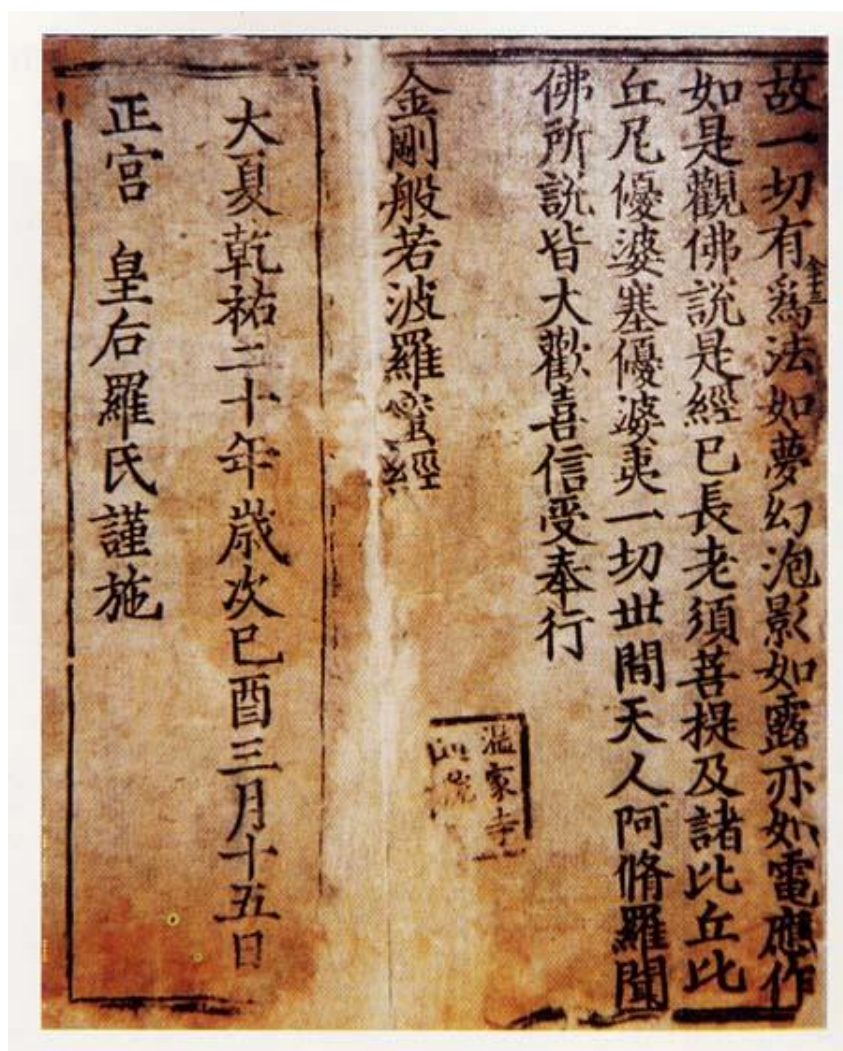 故一切有爲法如夢幻泡影如露亦如電應作
如是觀佛説是經已長老須菩提及諸比丘比
丘尼優婆塞優婆夷一切世間天人阿脩羅聞
佛所説皆大歡喜信受奉行
金剛般若波羅蜜經
溫家寺
院
大夏乾祐二十年歲次己酉三月十五日
正宮 皇后羅氏謹施